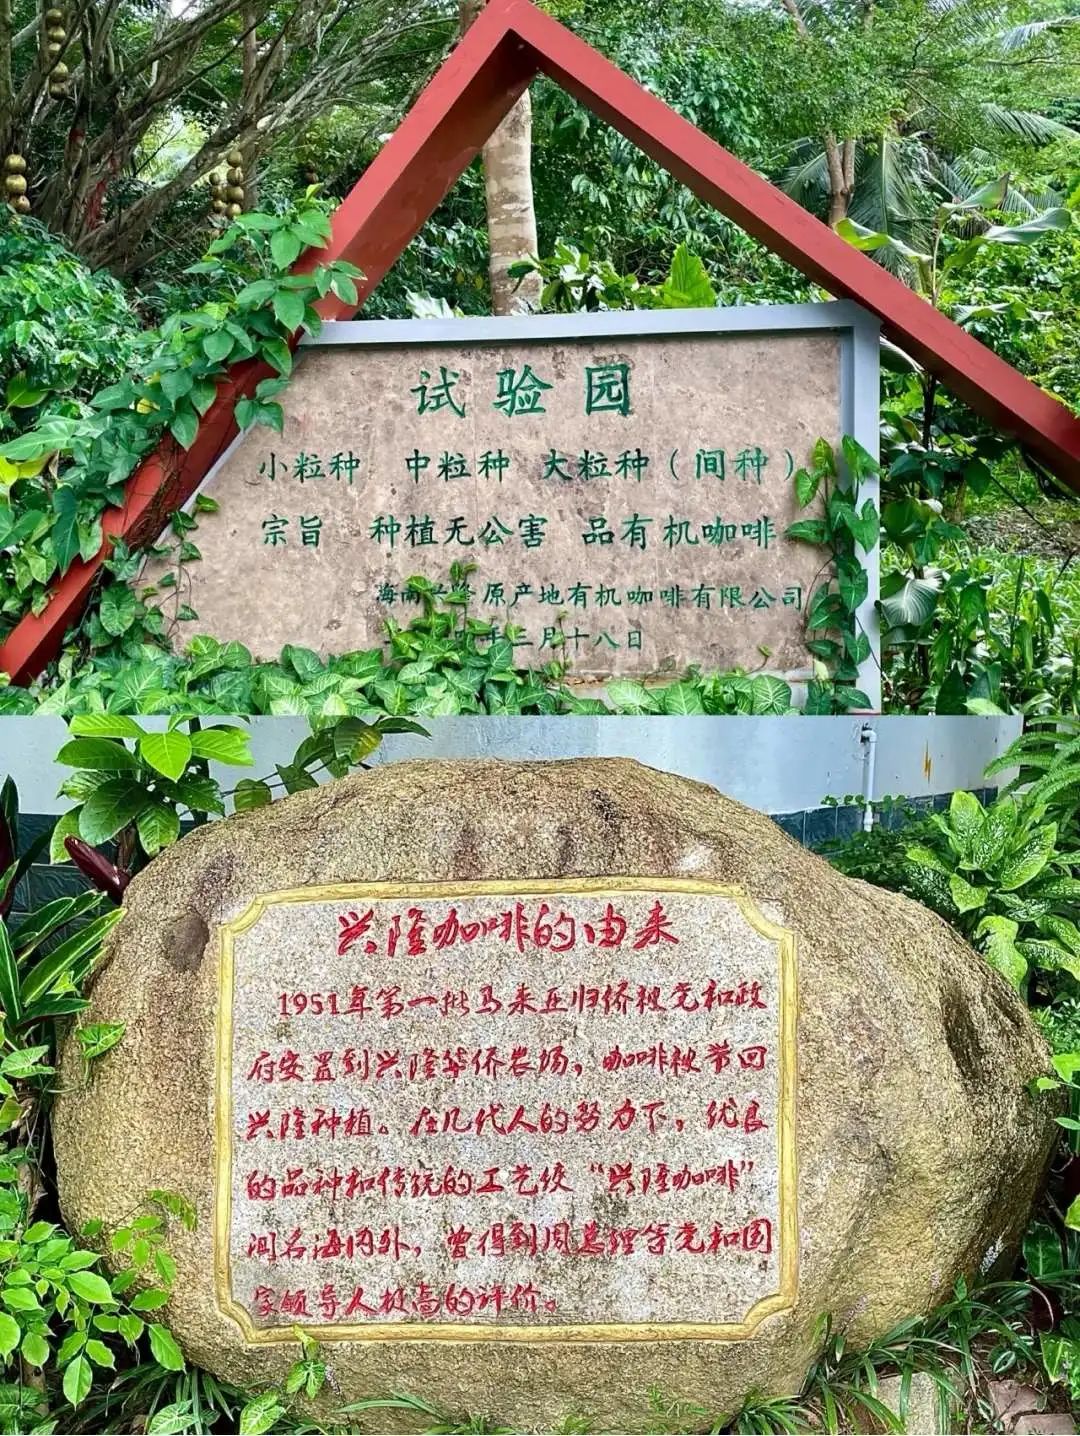 试验园
小粒种 中粒种 大粒种（间种）
宗旨 种植无公害 品有机咖啡
海南兴隆原产地有机咖啡有限公司
年三月十八日
兴隆咖啡的由来
1951年第一批马来亚归侨被党和政
府安置到兴隆华侨农场，咖啡被带回
兴隆种植。在几代人的努力下，优良
的品种和传统的工艺使“兴隆咖啡”
闻名海内外，曾得到周总理等党和国
家领导人极高的评价。